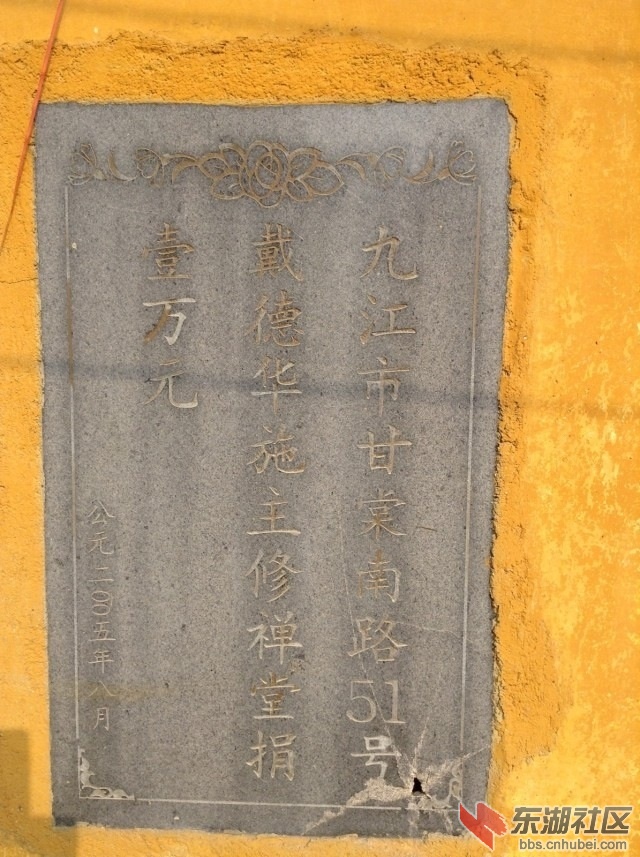 九江市甘棠南路51号
戴德华施主修禅堂捐
壹万元
公元二〇〇五年八月
东湖社区
bbs.cnhubei.com